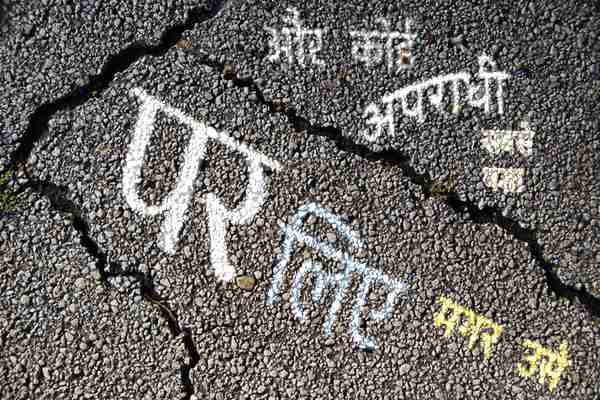 और कोई
अपराधी
पर
लिए
मगर उसे